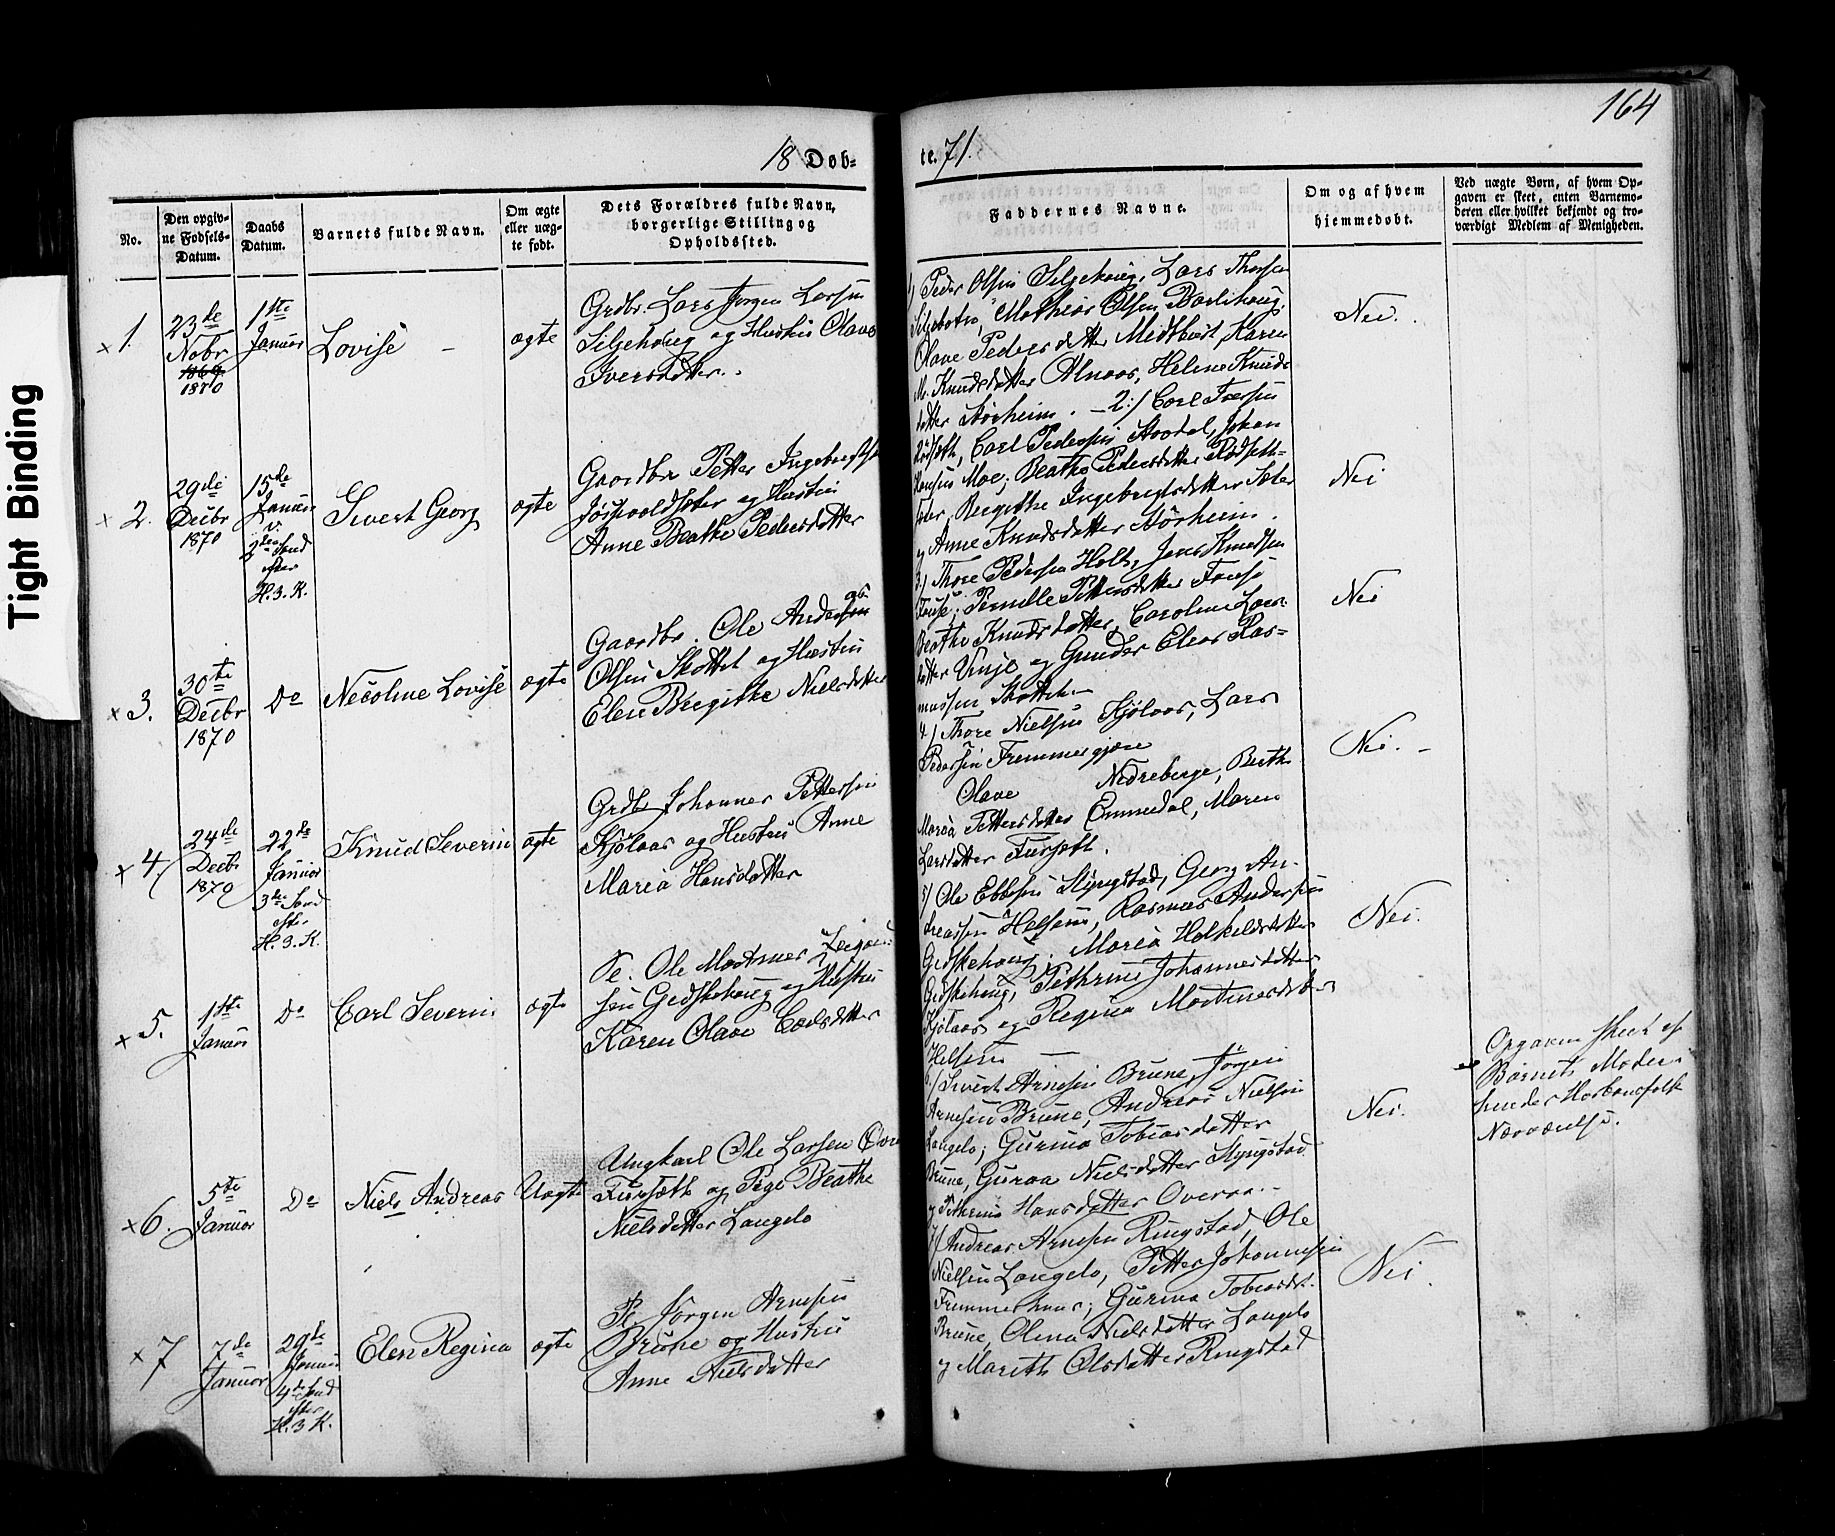 Tight Binding
164
18 Døb=
te. 71.
No.
Den opgiv-
ne Fødsels-
Datum.
Daabs
Datum.
Barnets fulde Navn.
Om ægte
eller uæg-
te født.
Dets Forældres fulde Navn,
borgerlige Stilling og
Opholdssted.
Faddernes Navne.
Om og af hvem
hjemmedøbt.
Ved uægte Børn, af hvem Op-
gaven er skeet, enten Barnemo-
deren eller hvilket bekjendt og tro-
værdigt Medlem af Menigheden.
x 1.
23de
Nobr
1869
1870
1ste
Januar
Lovise –
ægte
Grdbr. Lars Jørgen Larsen
Siljehoug og Hustru Olave
Iversdatter.
1) Peder Olsen Siljehoug, Lars Thorsen
Siljebotn, Mathias Olsen
Olave Pedersdatter Midtbøst, Karen
M. Knudsdatter Alnaas, Helene Knuds
datter Aørheim. – 2:/ Carl
Nei.
x 2.
29de
Decbr
1870
15de
Januar
v.
2den Sønd
efter
H. 3. K.
Sivert Georg
ægte
Gaardbr Petter Ingebrigtsen
og Hustru
Anne Beathe Pedersdatter
Rødsæth, Carl Pedersen Aasdal, Johan
Hansen Moe; Beathe Pedersdatter Rødseth-
Ingebrigtsdatter Sæter
og Anne Knudsdatter Aørheim.
Nei
x 3.
30te
Decbr
1870
Do
Nicoline Lovise
ægte
Gaardbr. Ole Andersen
Olsen Skottet og Hustru
Elen Birgitte Nielsdatter
3:) Thore Pedersen Holt, Jens Knudsen
Pernille Pettersdatter
Beathe Knudsdatter, Caroline Lars-
datter Vinje og Gunder Elias Ras=
mussen Skottet –
Nei
x 4.
24de
Decbr
1870
22de
Januar
3die Sønd
efter
H. 3. K.
Knud Severin
ægte
Grdbr Johannes Pettersen
Kjølaas og Hustru Anne
Maria Hansdatter
4:) Thore Nielsen Kjølaas, Lars
Pedersen Fremmergjære
Olave Nedreberge, Berthe
Maria Pettersdatter Emmedal, Maren
Larsdatter Fursæth.
Nei. –
x 5.
1ste
Januar
Do
Carl Severin
ægte
Ole Martinus
sen Gidskehoug og Hustru
Karen Olave Carlsdatter
5) Ole Ebbesen Slyngstad, Georg An-
dreassen Helsem, Rasmus Andersen
Gidskehoug. Maria
Gidskehoug, Pethrine Johannesdatter
Kjølaas og Regina Martinusdatter
Helsem –
Nei.
x 6.
5te
Januar
Do
Niels Andreas
Uægte
Ungkarl Ole Larsen Øvre
Fursæth og Pige Beathe
Nielsdatter Langelo
6.) Sivert Arnesen Brune, Jørgen
Arnesen Brune, Andreas Nielsen
Langelo; Gurina Tobiasdatter
Brune, Guroa Nielsdatter Slyngstad
og Pethrine Hansdatter Overaa. –
Nei.
Opgaven skeet af
Barnets Moder i
hendes Husbondfolk
Nærværelse.
x 7
7de
Januar
29de
Januar
4de Sønd
efter
H. 3 K.
Elen Regina
ægte
Jørgen Arnesen
Brune og Hustru
Anne Nielsdatter
7) Andreas Arnesen Ringstad, Ole
Nielsen Langelo, Petter Johannesen
Fremmerhaus; Gurina Tobiasdt.
Brune, Olena Nielsdatter Langelo
og Marith Olsdatter Ringstad
Nei.